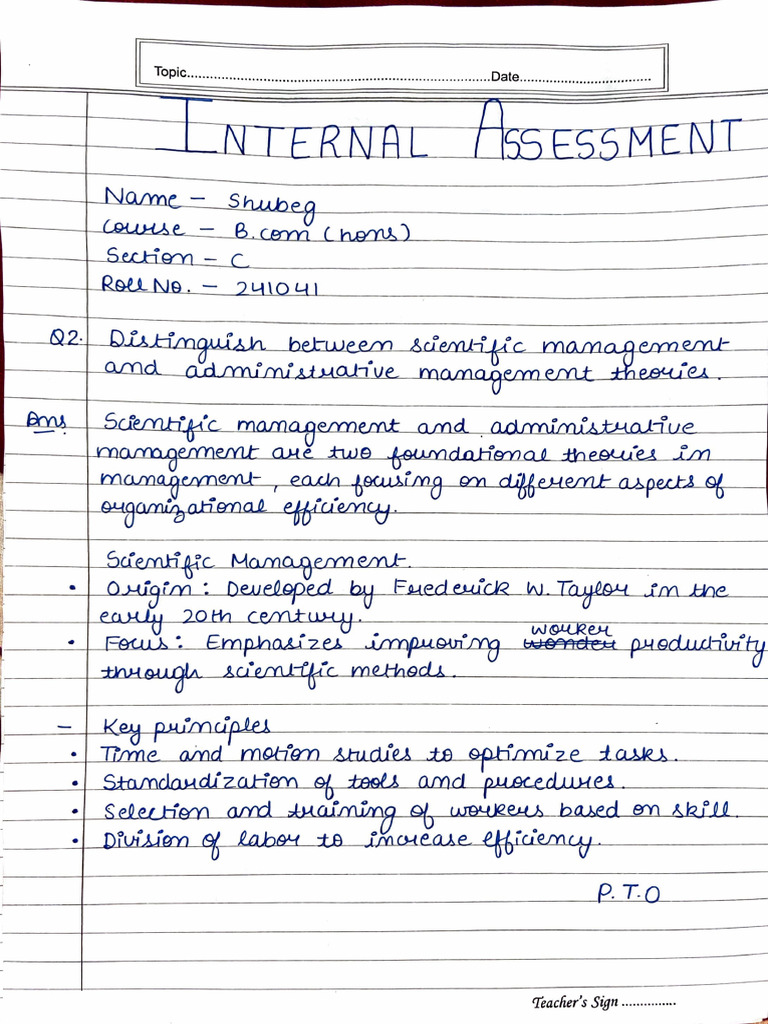 Topic....................Date....................
INTERNAL ASSESSMENT
Name - Shubeg
Course - B.com (hons)
Section - C
Roll No. - 241041
Q2. Distinguish between scientific management
and administrative management theories.
Ans. Scientific management and administrative
management are two foundational theories in
management, each focusing on different aspects of
organizational efficiency.
Scientific Management.
• Origin: Developed by Frederick W. Taylor in the
early 20th century.
worker
• Focus: Emphasizes improving wonder productivity
through scientific methods.
- Key principles
• Time and motion studies to optimize tasks.
• Standardization of tools and procedures.
• Selection and training of workers based on skill.
• Division of labor to increase efficiency.
P.T.O
Teacher's Sign ...............